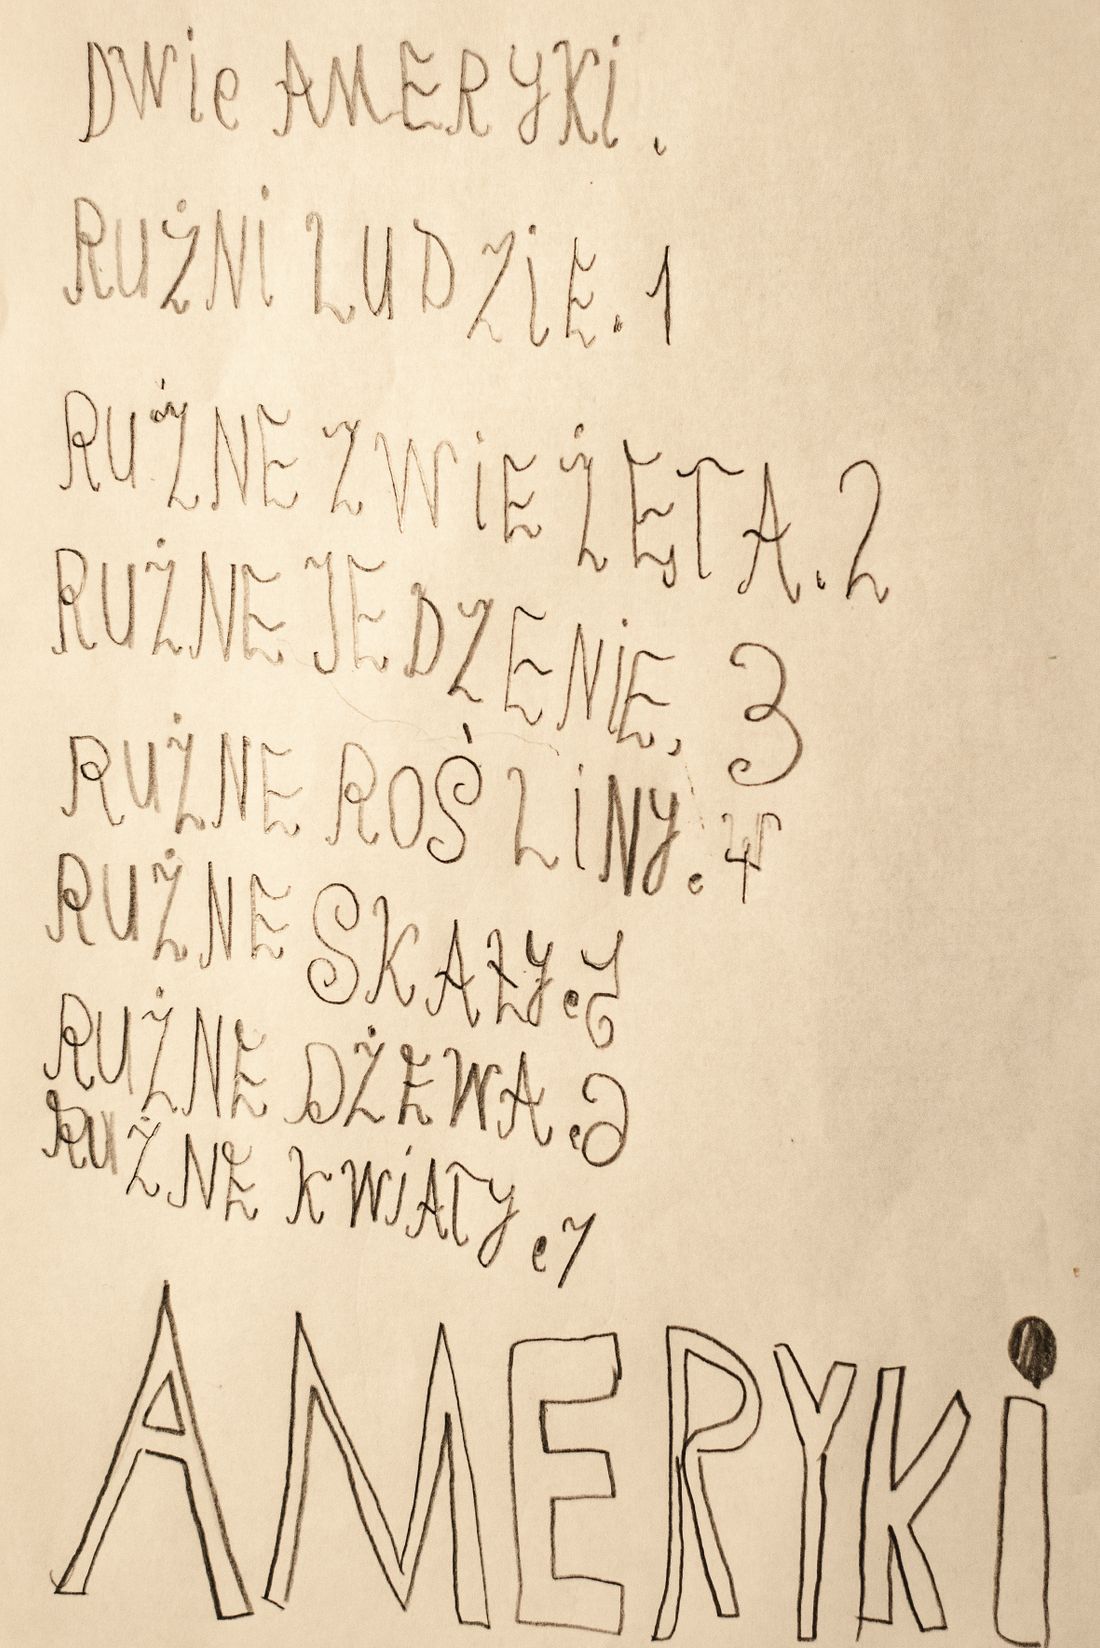 DWie AMERYKi.
RUŻNI LUDZiE.1
RUŻNE ZWiEŻĘTA.2
RUŻNE JEDZENiE. 3
RUŻNE ROŚLiNY.4
RUŻNE SKAŁY.5
RUŻNE DŻEWA.6
RUŻNE KWiATY.7
AMERYKi